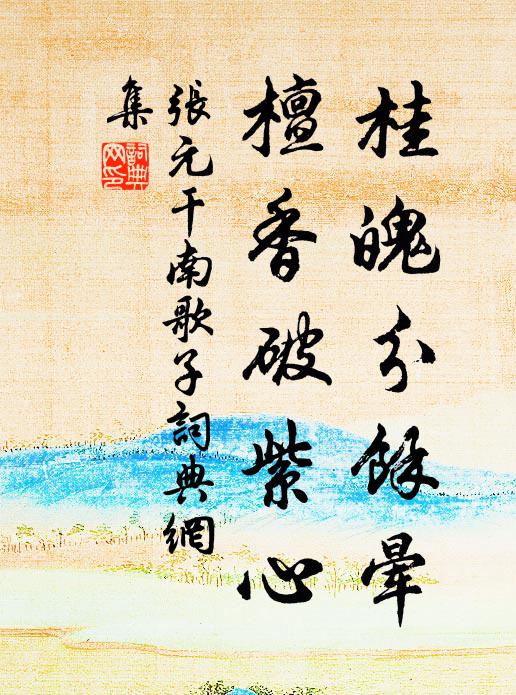 桂魄分餘暈
檀香破紫心
張元干南歌子詞典網
集
詞典
网印